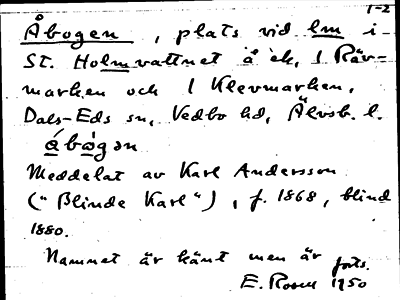 1-2
Åbogen, plats vid lm i
St. Holmvattnet å ek. 1 Räv-
marken och 1 Klevmarken,
Dals-Eds sn, Vedbo hd, Älvsb. l.
åbògən
Meddelat av Karl Andersson
("Blinde Karl"), f. 1868, blind
1880.
Namnet är känt men är forts.
E. Rosell 1950